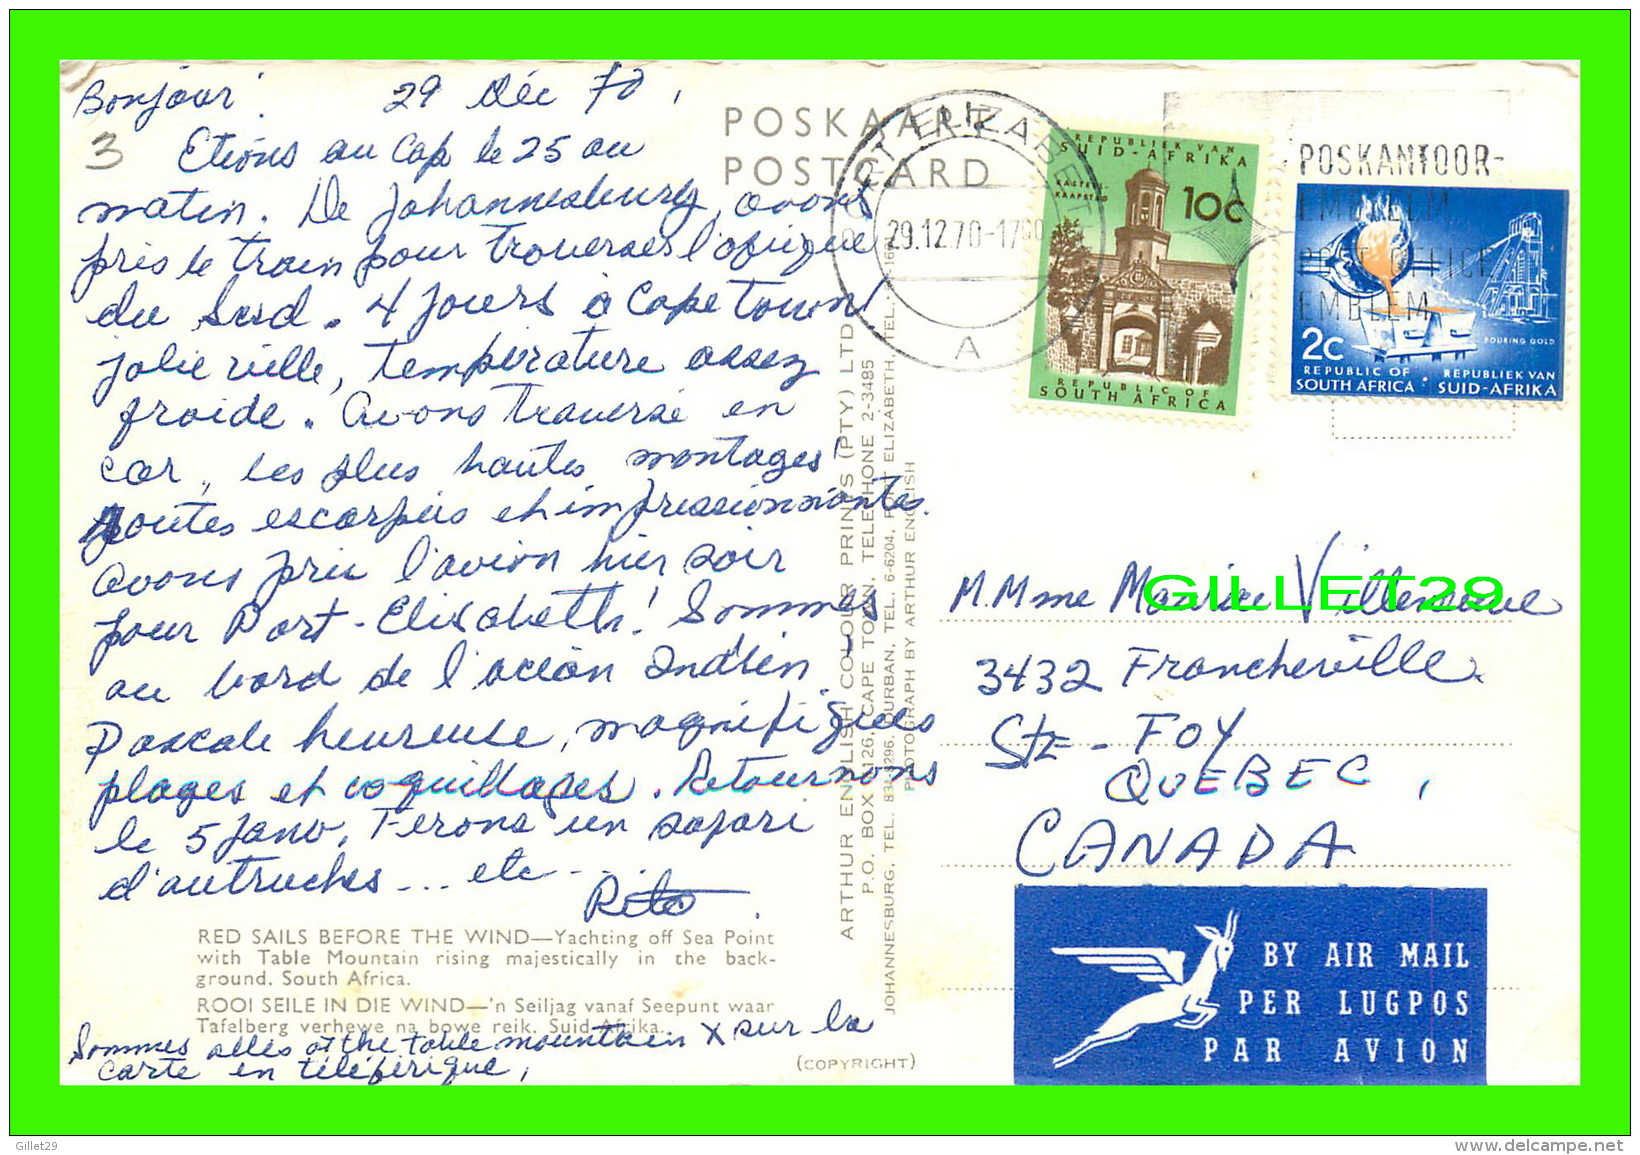 Bonjour! 29 Déc 70,
3
Etions au Cap le 25 au
matin. De Johannesburg, avons
pris le train pour traverser l'Afrique
du Sud. 4 jours à Cape Town!
jolie ville, température assez
froide. Avons traversé en
car, les plus hautes montages
routes escarpées et impressionnantes.
Avons pris l'avion hier soir
pour Port-Elisabeth! Sommes
au bord de l'océan Indien
Pascale heureuse, magnifiques
plages et coquillages. Retournons
le 5 Janv. Ferons un safari
d'autruches... etc...
Rita.
RED SAILS BEFORE THE WIND—Yachting off Sea Point
with Table Mountain rising majestically in the back-
ground. South Africa.
ROOI SEILE IN DIE WIND—'n Seiljag vanaf Seepunt waar
Tafelberg verhewe na bowe reik. Suid-Afrika.
Sommes allés at the table mountain X sur la
carte en téléférique,
(COPYRIGHT)
POSKAART
POSTCARD
ARTHUR ENGLISH COLOUR PRINTS (PTY) LTD
P.O. BOX 1126, CAPE TOWN. TELEPHONE 2-3485
JOHANNESBURG, TEL. 83 DURBAN, TEL. 6-6204, PORT ELIZABETH, TEL.
PHOTOGRAPH BY ARTHUR ENGLISH
PORT ELIZABETH
29.12.70-17
A
REPUBLIEK VAN
SUID-AFRIKA
KASTEEL
KAAPSTAD
10c
REPUBLIC OF
SOUTH AFRICA
POSKANTOOR-
EMBLEEM
POST OFFICE
EMBLEM
2c
POURING GOLD
REPUBLIC OF
SOUTH AFRICA
REPUBLIEK VAN
SUID-AFRIKA
M. Mme Maurice Villeneuve
GILLET29
3432 Francheville
Ste-Foy
QUEBEC,
CANADA
BY AIR MAIL
PER LUGPOS
PAR AVION
Gillet29
www.delcampe.net